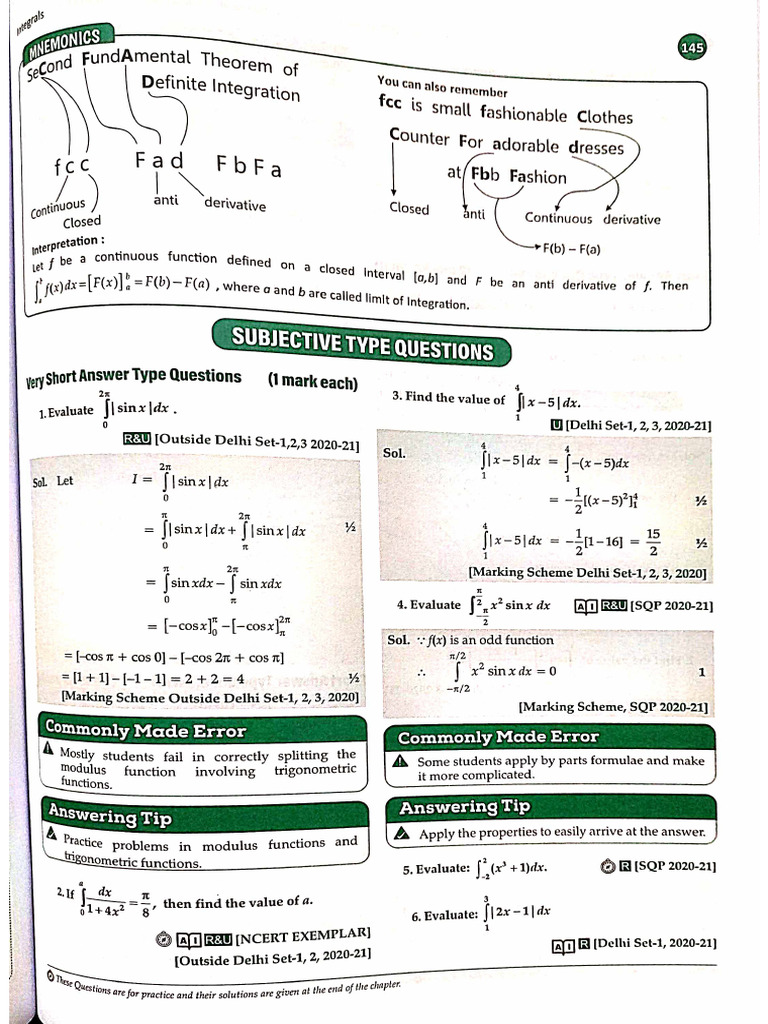 Integrals
145
MNEMONICS
SeCond FundAmental Theorem of
Definite Integration
f c c F a d F b F a
Continuous
Closed
anti derivative
You can also remember
fcc is small fashionable Clothes
Counter For adorable dresses
at Fbb Fashion
Closed anti Continuous derivative
F(b) – F(a)
Interpretation :
Let f be a continuous function defined on a closed interval [a,b] and F be an anti derivative of f. Then
∫_a^b f(x)dx = [F(x)]_a^b = F(b) – F(a) , where a and b are called limit of Integration.
SUBJECTIVE TYPE QUESTIONS
Very Short Answer Type Questions (1 mark each)
1. Evaluate ∫_0^{2π} | sin x | dx .
R&U [Outside Delhi Set-1,2,3 2020-21]
Sol. Let I = ∫_0^{2π} | sin x | dx
= ∫_0^π | sin x | dx + ∫_π^{2π} | sin x | dx ½
= ∫_0^π sin xdx – ∫_π^{2π} sin xdx
= [–cos x]_0^π – [–cos x]_π^{2π}
= [–cos π + cos 0] – [–cos 2π + cos π]
= [1 + 1] – [–1 – 1] = 2 + 2 = 4 ½
[Marking Scheme Outside Delhi Set-1, 2, 3, 2020]
Commonly Made Error
Mostly students fail in correctly splitting the
modulus function involving trigonometric
functions.
Answering Tip
Practice problems in modulus functions and
trigonometric functions.
2. If ∫_0^a dx/(1 + 4x²) = π/8, then find the value of a.
A I R&U [NCERT EXEMPLAR]
[Outside Delhi Set-1, 2, 2020-21]
3. Find the value of ∫_1^4 | x – 5 | dx.
U [Delhi Set-1, 2, 3, 2020-21]
Sol. ∫_1^4 | x – 5 | dx = ∫_1^4 –(x – 5)dx
= –1/2 [(x – 5)²]_1^4 ½
∫_1^4 | x – 5 | dx = –1/2 [1 – 16] = 15/2 ½
[Marking Scheme Delhi Set-1, 2, 3, 2020]
4. Evaluate ∫_{-π/2}^{π/2} x² sin x dx A I R&U [SQP 2020-21]
Sol. ∵ f(x) is an odd function
∴ ∫_{–π/2}^{π/2} x² sin x dx = 0 1
[Marking Scheme, SQP 2020-21]
Commonly Made Error
Some students apply by parts formulae and make
it more complicated.
Answering Tip
Apply the properties to easily arrive at the answer.
5. Evaluate: ∫_{-2}^2 (x³ + 1)dx. R [SQP 2020-21]
6. Evaluate: ∫_1^3 | 2x – 1 | dx
A I R [Delhi Set-1, 2020-21]
These Questions are for practice and their solutions are given at the end of the chapter.